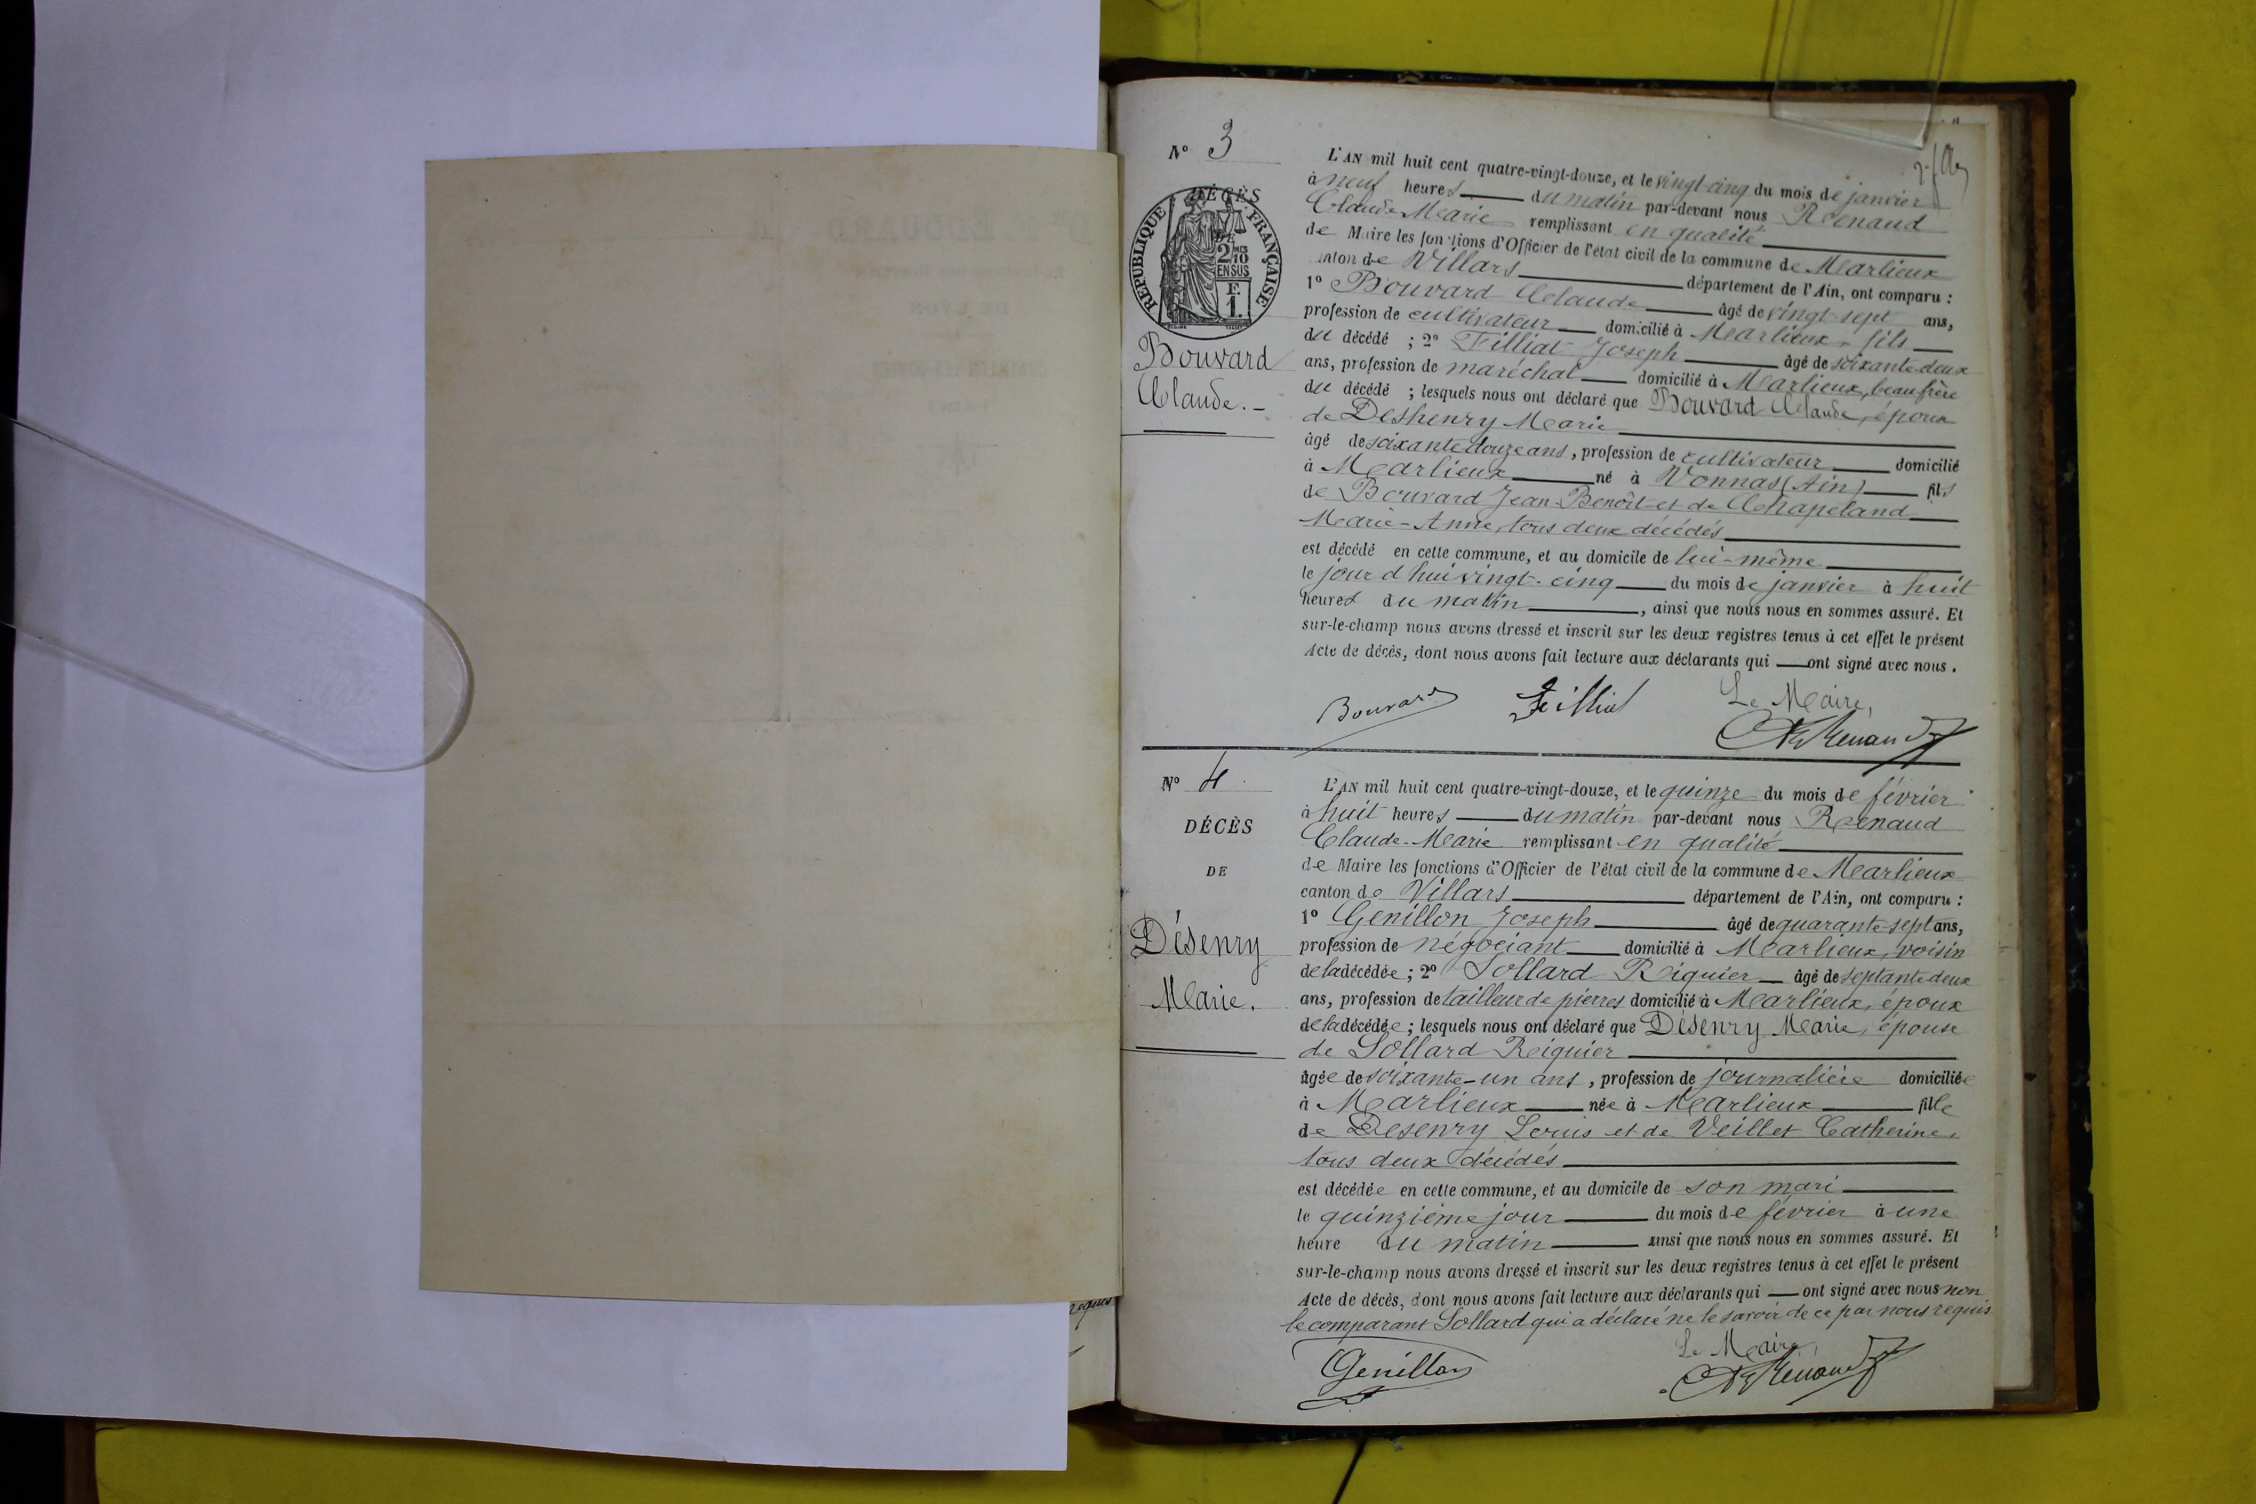 Nº 3
DÉCÈS
RÉPUBLIQUE FRANÇAISE
2/10
EN SUS
F.
1.
Bouvard
Claude. -
L'AN mil huit cent quatre-vingt-douze, et le vingt-cinq du mois de janvier
à neuf heures du matin par-devant nous Renaud
Claude Marie remplissant en qualité
de Maire les fonctions d'Officier de l'état civil de la commune de Marlieux
canton de Villars département de l'Ain, ont comparu :
1º Bouvard Claude âgé de vingt-sept ans,
profession de cultivateur domicilié à Marlieux, fils
du décédé ; 2º Filliat Joseph âgé de soixante-deux
ans, profession de maréchal domicilié à Marlieux, beau frère
du décédé ; lesquels nous ont déclaré que Bouvard Claude, époux
de Deshenry Marie
âgé de soixante douze ans, profession de cultivateur domicilié
à Marlieux né à Vonnas (Ain) fils
de Bouvard Jean-Benoît et de Chapeland
Marie-Anne, tous deux décédés
est décédé en cette commune, et au domicile de lui-même
le jour d'hui vingt-cinq du mois de janvier à huit
heures du matin, ainsi que nous nous en sommes assuré. Et
sur-le-champ nous avons dressé et inscrit sur les deux registres tenus à cet effet le présent
Acte de décès, dont nous avons fait lecture aux déclarants qui ont signé avec nous.
Bouvard Filliat Le Maire,
Renaud
Nº 4
DÉCÈS
DE
Désenry
Marie.
L'AN mil huit cent quatre-vingt-douze, et le quinze du mois de février
à huit heures du matin par-devant nous Renaud
Claude-Marie remplissant en qualité
de Maire les fonctions d'Officier de l'état civil de la commune de Marlieux
canton de Villars département de l'Ain, ont comparu :
1º Genillon Joseph âgé de quarante-sept ans,
profession de négociant domicilié à Marlieux, voisin
de la décédée ; 2º Sollard Reiguier âgé de septante deux
ans, profession de tailleur de pierres domicilié à Marlieux, époux
de la décédée ; lesquels nous ont déclaré que Désenry Marie, épouse
de Sollard Reiguier
âgée de soixante-un ans, profession de journalière domiciliée
à Marlieux née à Marlieux fille
de Désenry Louis et de Veillet Catherine,
tous deux décédés
est décédée en cette commune, et au domicile de son mari
le quinzième jour du mois de février à une
heure du matin ainsi que nous nous en sommes assuré. Et
sur-le-champ nous avons dressé et inscrit sur les deux registres tenus à cet effet le présent
Acte de décès, dont nous avons fait lecture aux déclarants qui ont signé avec nous non
le comparant Sollard qui a déclaré ne le savoir de ce par nous requis
Le Maire,
Genillon Renaud